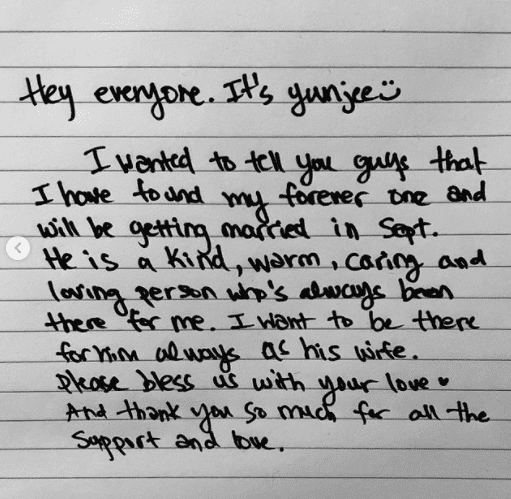 Hey everyone. It's yunjee
I wanted to tell you guys that
I have found my forever one and
will be getting married in Sept.
He is a kind, warm, caring and
loving person who's always been
there for me. I want to be there
for him always as his wife.
Please bless us with your love ♥
And thank you so much for all the
support and love.